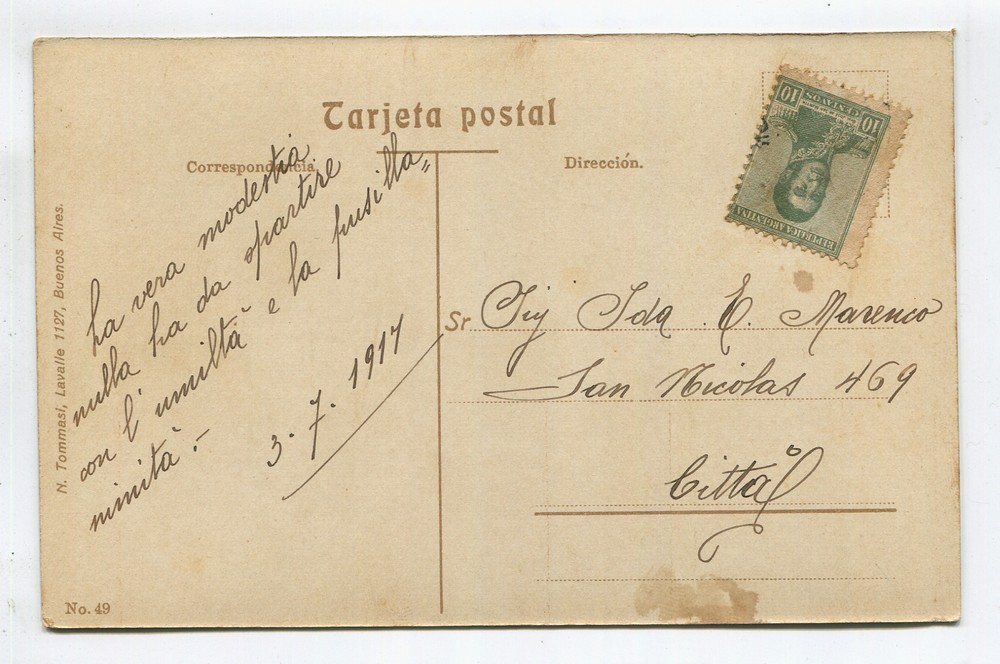 Tarjeta postal
Correspondencia.
Dirección.
La vera modestia
nulla ha da spartire
con l'umiltà e la pusilla=
nimità.-
3. 7. 1917
Sr Sig Ida E. Marenco
San Nicolas 469
Città
N. Tommasi, Lavalle 1127, Buenos Aires.
No. 49
10 10
CENTAVOS
REPUBLICA ARGENTINA